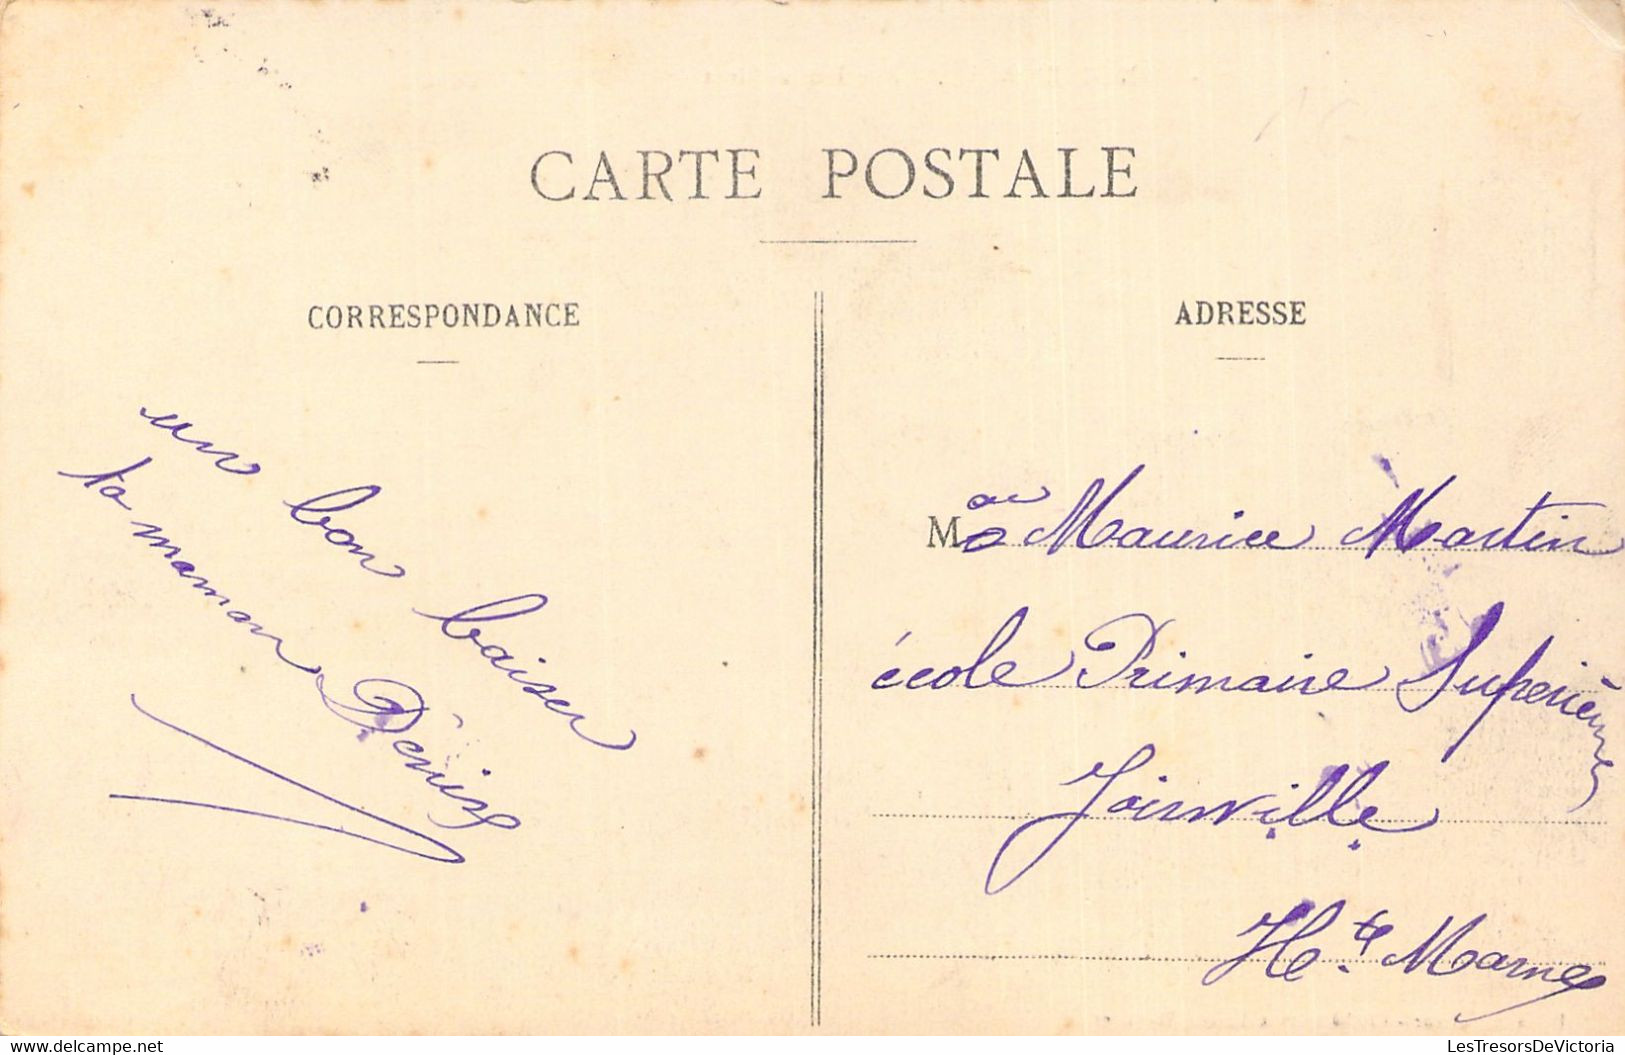 CARTE POSTALE
CORRESPONDANCE
un bon baiser
ta maman Dénise
ADRESSE
M Maurice Martin
école Primaire Supérieure
Joinville
Hte Marne
delcampe.net
LesTresorsDeVictoria